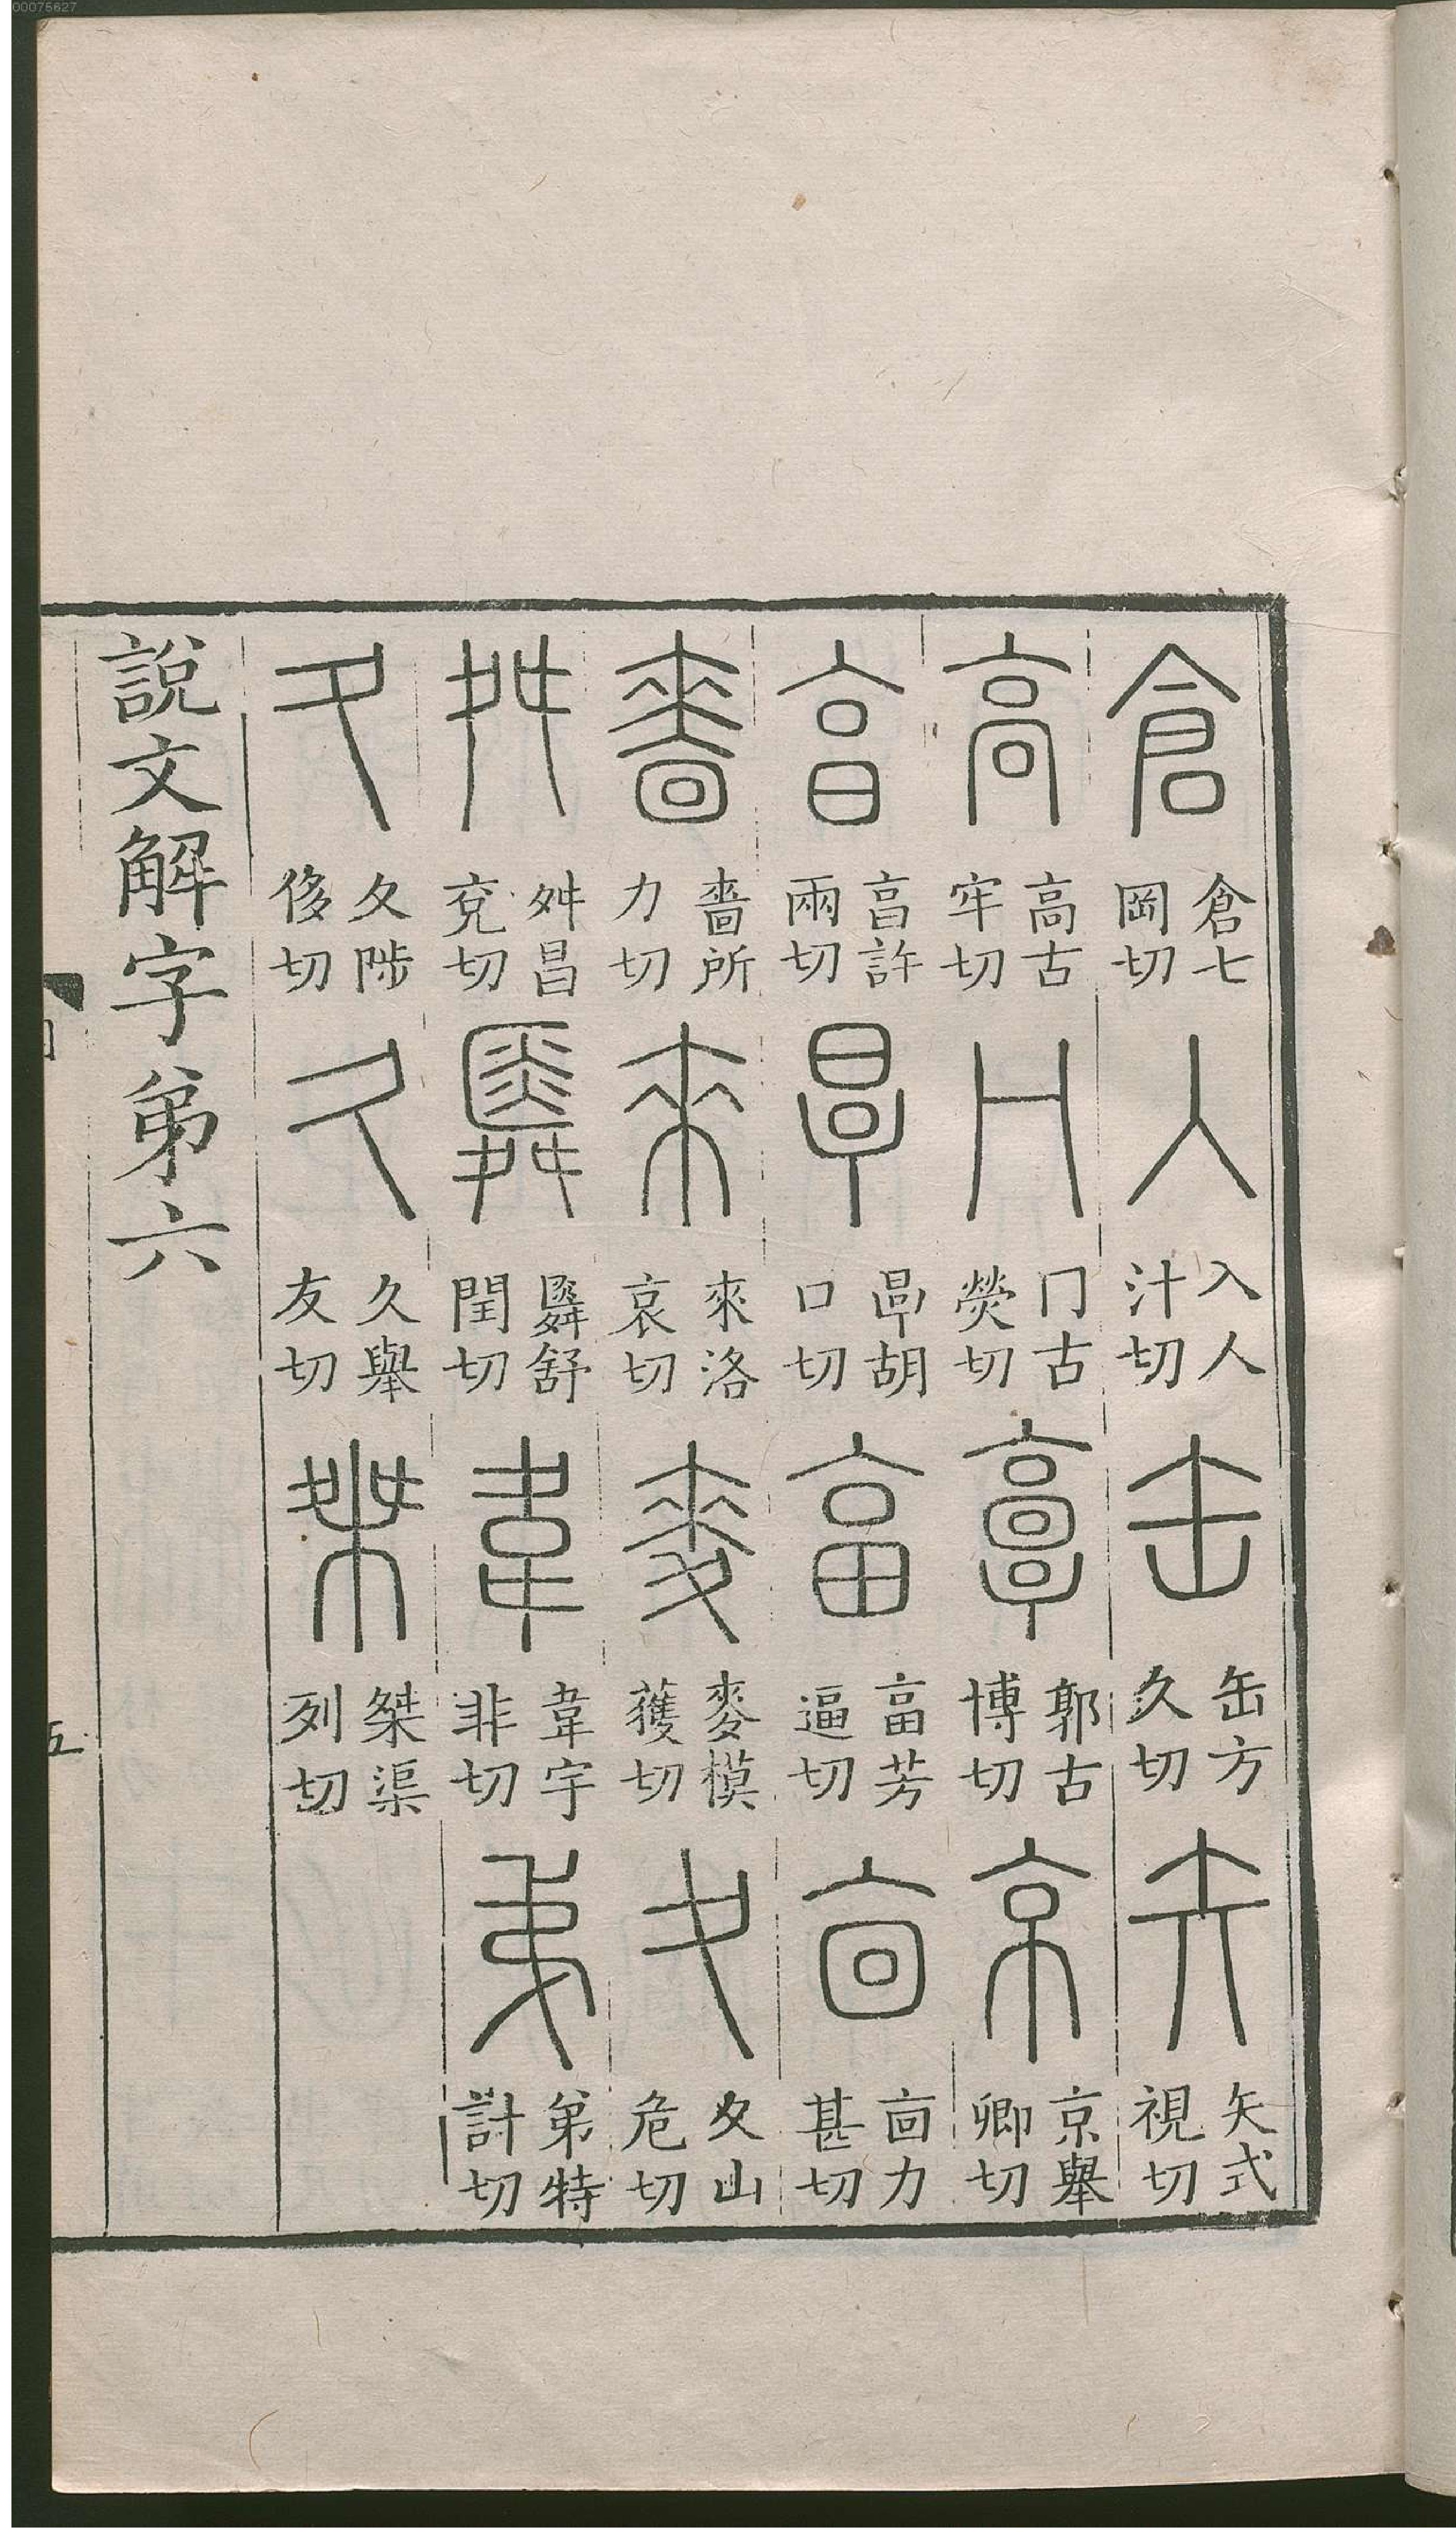 00075627
倉 倉七岡切 入 入人汁切 缶 缶方久切 矢 矢式視切
高 高古牢切 冂 冂古熒切 𩫏 郭古博切 京 京舉卿切
亯 亯許兩切 㫗 㫗胡口切 畗 畗芳逼切 㐭 㐭力甚切
嗇 嗇所力切 來 來洛哀切 麥 麥模獲切 夊 夊山危切
舛 舛昌兖切 䑞 䑞舒閏切 韋 韋宇非切 弟 弟特計切
夂 夂陟侈切 久 久舉友切 桀 桀渠列切
說文解字弟六
五